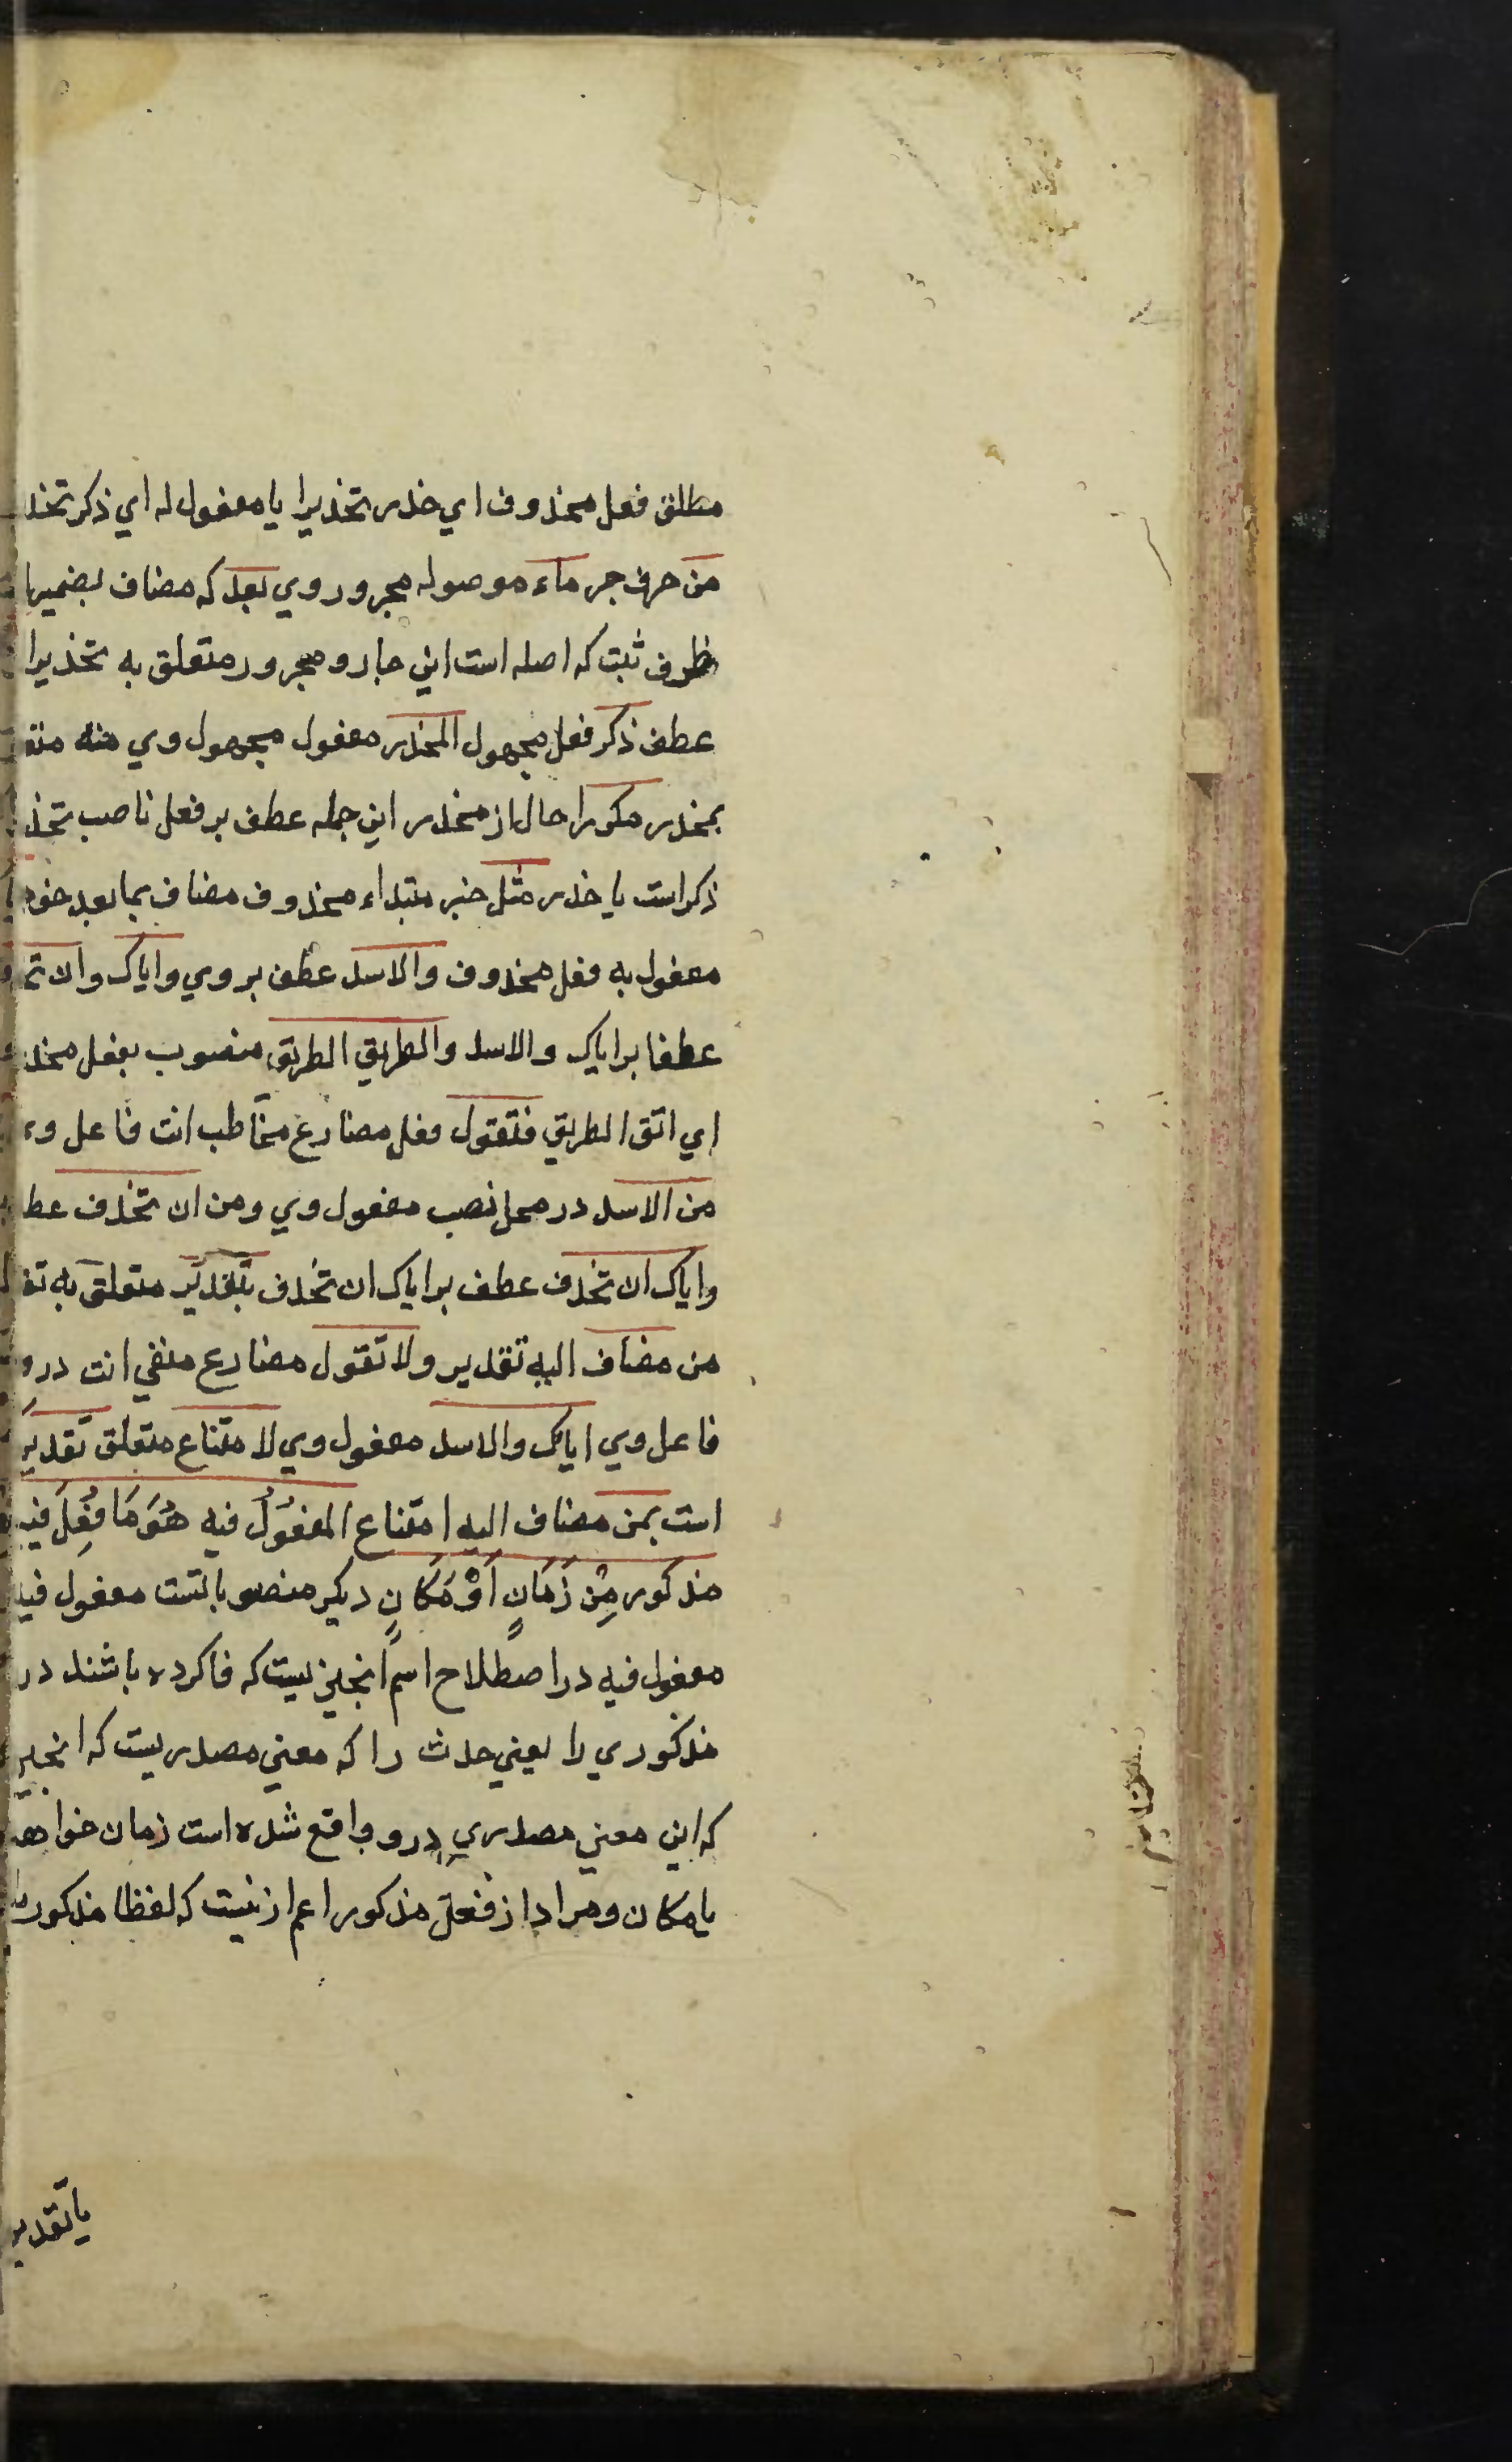 مطلق فعل محذوف اي حذر تحذيرا يا مفعول له اي ذكر تحذ
من حرف جر ماء موصوله مجرور وي بعد كه مضاف بضميرها
ظرف ثبت كه اصله است اين جار و مجرور متعلق به تحذيرا
عطف ذكر فعل مجهول المحذر مفعول مجهول وي منه متع
بمحذر مكررا حال از محذر اين جمله عطف بر فعل ناصب تحذ
ذكر است يا حذر مثل خبر مبتداء محذوف مضاف بما بعد خود
مفعول به فعل محذوف والاسد عطف بر وي واياك وان تح
عطفا بر اياك والاسد والطريق الطريق منصوب بفعل محذ
اي اتق الطريق فتقول فعل مضارع مخاطب انت فاعل و
من الاسد در محل نصب مفعول وي ومن ان تحذف عط
واياك ان تحذف عطف بر اياك ان تحذف بتقدير متعلق به تق
من مضاف اليه تقدير ولا تقول مضارع منفي انت در و
فاعل وي اياك والاسد مفعول وي لامتناع متعلق تقدير
است بمن مضاف اليه امتناع المفعول فيه هُوَ مَا فُعِلَ فيه
مذكور مِن زَمَانٍ اَوْ مَكَانٍ ديكر منصوبا تست مفعول فيه
مفعول فيه در اصطلاح اسم انجيزيست كه فا كرده باشند در
مذكوري را يعني حدث را كه معني مصدريست كه انجيز
كه اين معني مصدري در و واقع شده است زمان خواه
يا مكان و مراد از فعل مذكور اعم ازنيست كه لفظا مذكور
يا تقدير